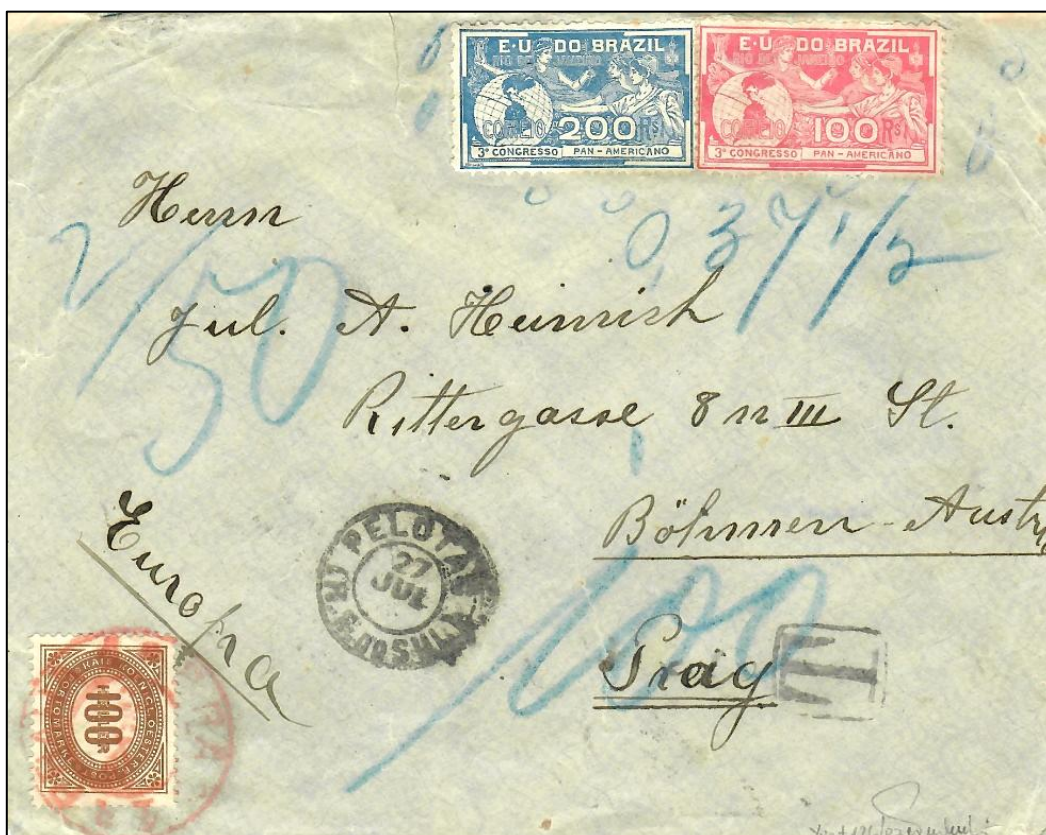 E·U DO BRAZIL
RIO DE JANEIRO
CORREIO 200 RS
3º CONGRESSO PAN-AMERICANO
E·U DO BRAZIL
RIO DE JANEIRO
CORREIO 100 RS
3º CONGRESSO PAN-AMERICANO
0,37 1/2
Herrn
2/50
Jul. A. Heinrich
Rittergasse 8 n III St.
Böhmen-Austr
Europa
PELOTAS
27
JUL
R.G. DO SUL
100
Prag
T
100
KAIS. KOENIGL. OESTERR. POST
PORTOMARKE